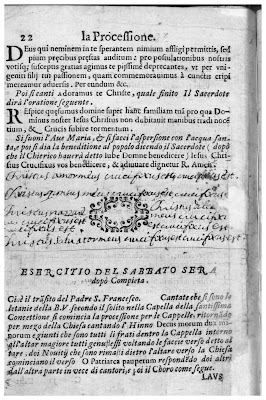 22 la Processione.
DEus qui neminem in te sperantem nimium affligi permittis, sed
pium precibus præstas auditum: pro postulationibus nostris
votisq; susceptis gratias agimus te piissimè deprecantes, vt per vni-
geniti filij tui passionem, quam commemorauimus à cunctis eripi
mereamur aduersis. Per eundem &c.
Poi si canti Adoramus te Christe, quale finito Il Sacerdote
dirà l'oratione seguente.
REspice quæsumus domine super hanc familiam tuã pro qua Do-
minus noster Iesus Christus non dubitauit manibus tradi nocé
tium, & Crucis subire tormentum.
Si suoni l'Aue Maria, & si facci l'aspersione con l'acqua san-
ta, poi si dia la beneditione al popolo dicendo il Sacerdote (dopò
che il Chierico hauerà detto Iube Domne benedicere) Iesus Chri-
stus Crucifixus vos benedicat, & adiuuare dignetur R. Amen.
ESERCITIO DEL SABBATO SERA
dopò Compieta.
Ciò è il trãsito del Padre S. Francesco. Cantate che si sono le
letanie della B.V secondo il solito nella Capella della santissima
Concettione si comincia la processione per le Cappelle, ritornãdo
per mego della Chiesa cantando l'Hinno Decus morum dux mi-
norum egiunti che sono tutti li frati dentro la Cappella intorno
all'altare maggiore tutti genuflessi voltando le faccie verso detto al
tare, doi Nouitij che sono rimasti dietro l'altare verso la Chiesa
cominciano il verso O Patriarca pauperum respondẽdo doi altri
dall'altra parte in vece di cantori, poi il Choro come segue.
LAVS